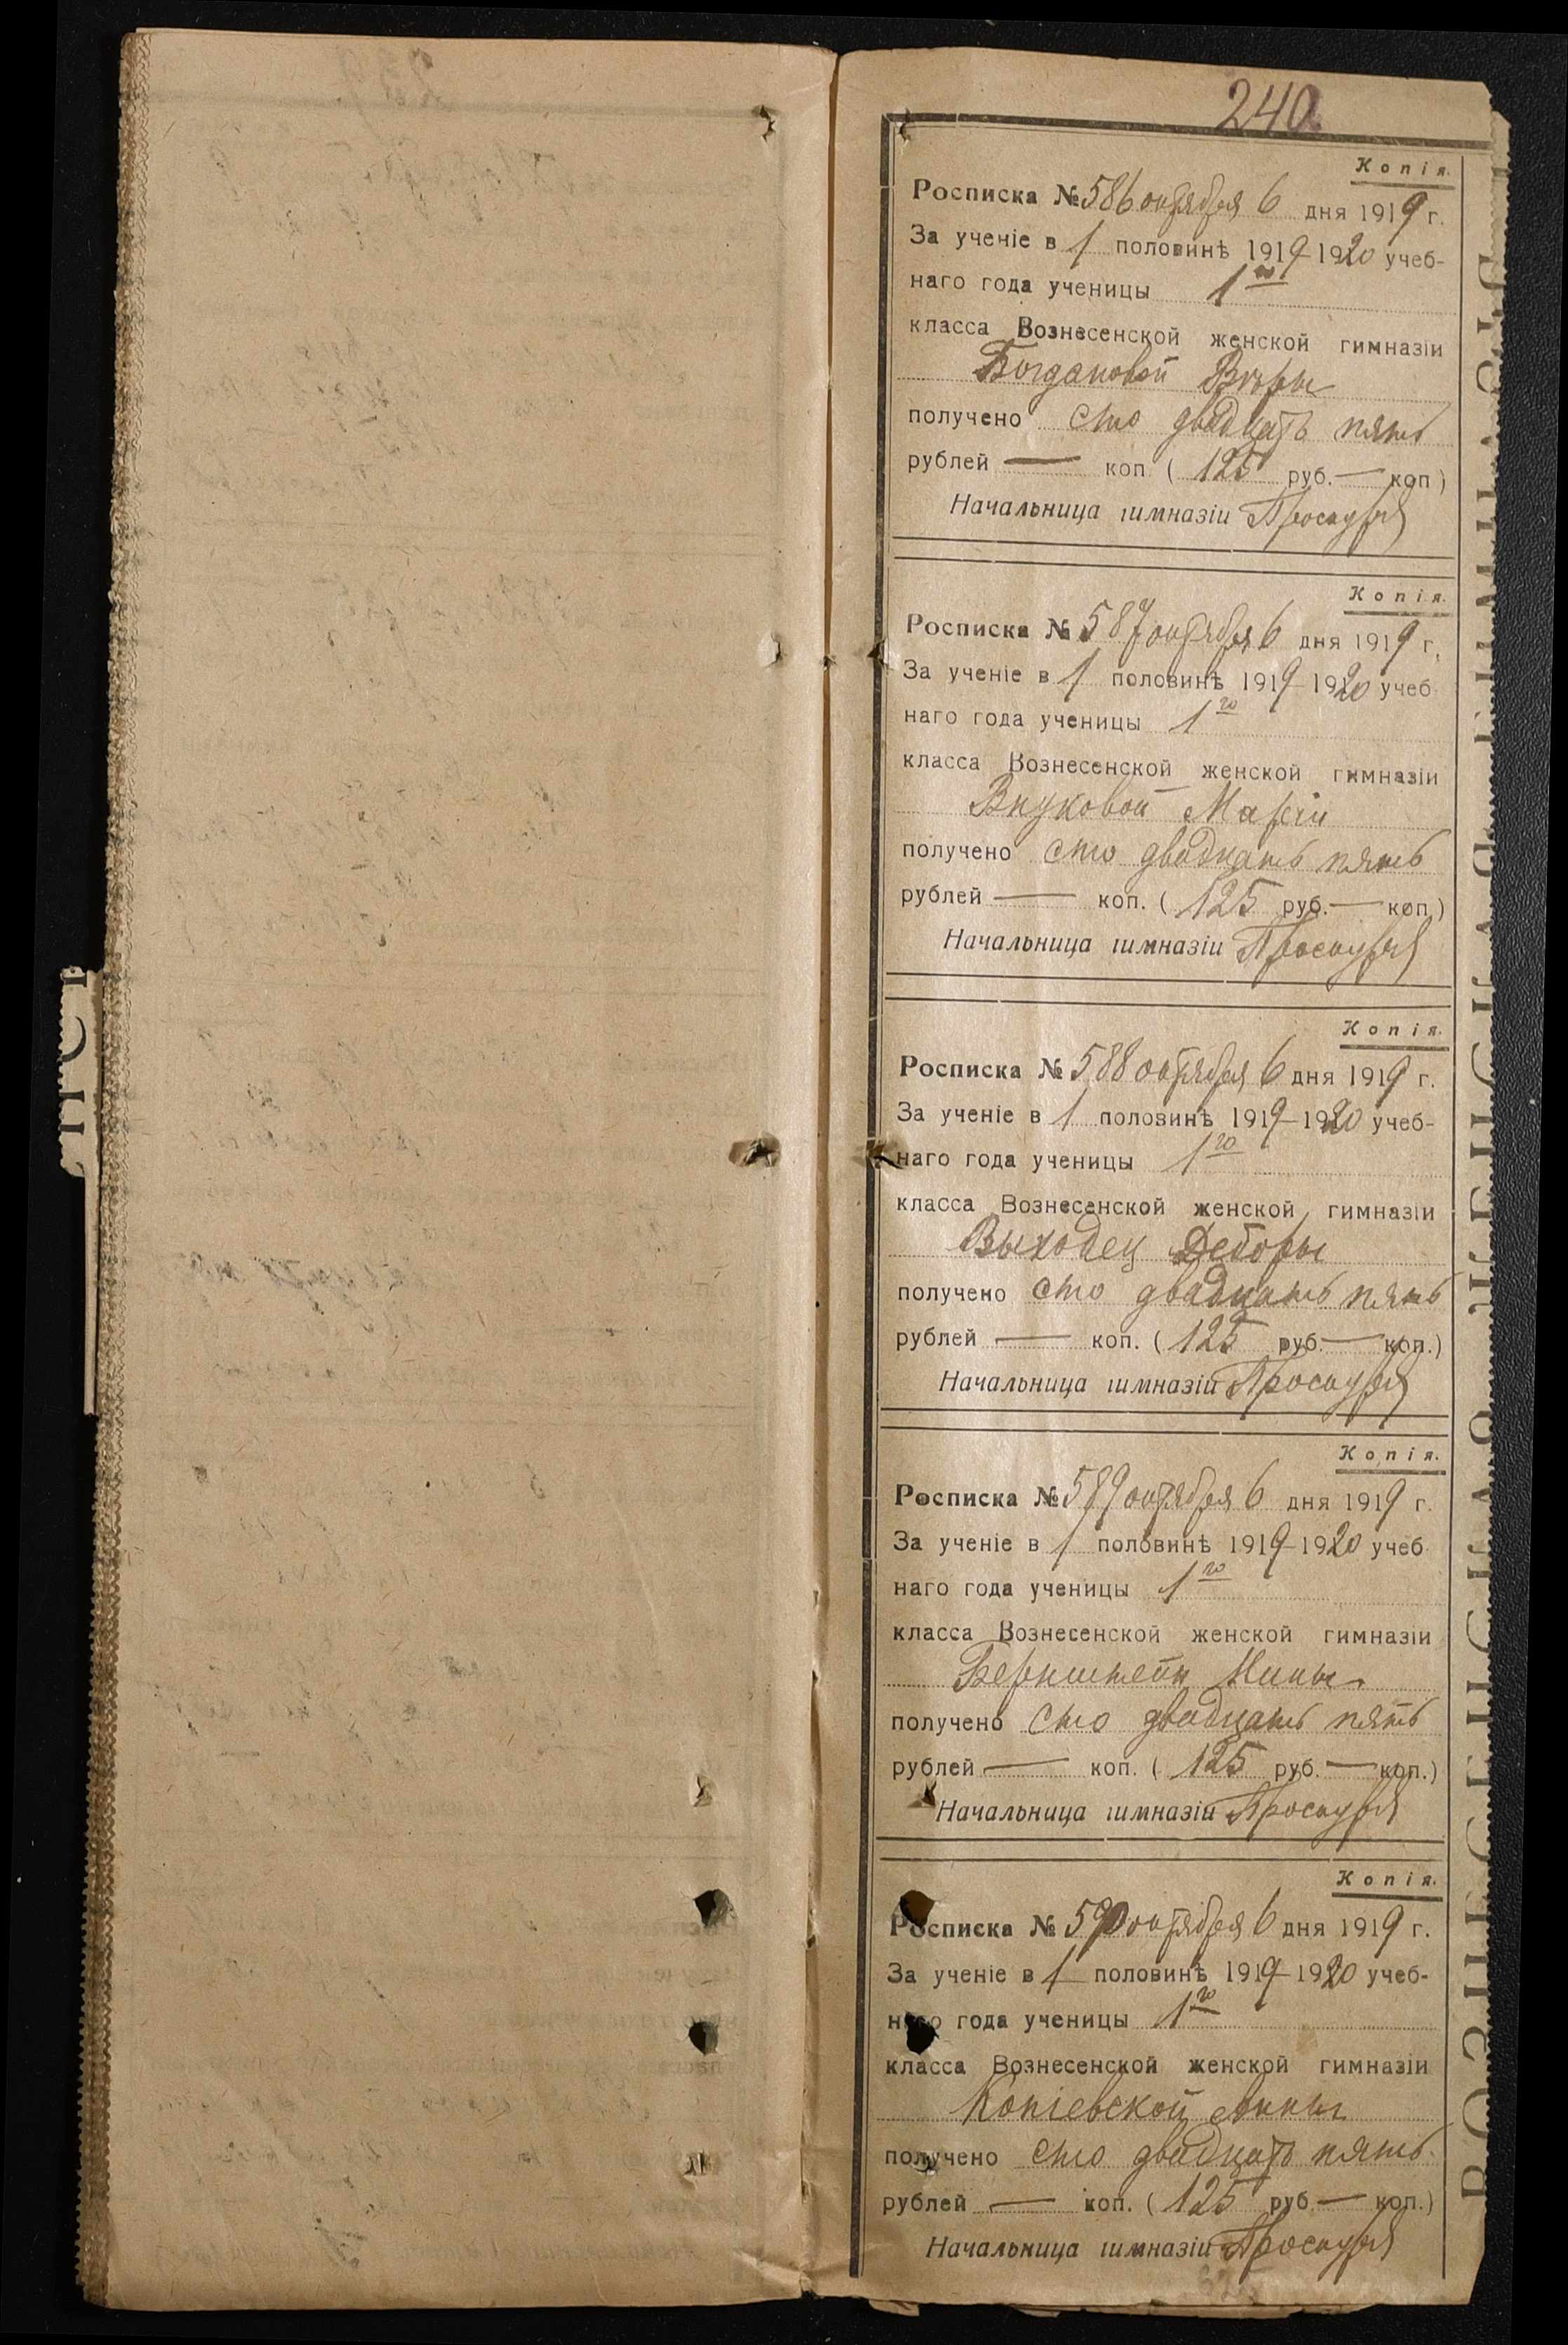 240
Копія.
Росписка № 586 октября 6 дня 1919 г.
За ученіе в 1 половинѣ 1919-1920 учеб-
наго года ученицы 1го
класса Вознесенской женской гимназіи
Богдановой Вѣры
получено сто двадцать пять
рублей — коп. ( 125 руб. — коп )
Начальница гимназіи
Копія.
Росписка № 587 октября 6 дня 1919 г.
За ученіе в 1 половинѣ 1919-1920 учеб-
наго года ученицы 1го
класса Вознесенской женской гимназіи
Внуковой Маріи
получено сто двадцать пять
рублей — коп. ( 125 руб. — коп.)
Начальница гимназіи
Копія.
Росписка № 588 октября 6 дня 1919 г.
За ученіе в 1 половинѣ 1919-1920 учеб-
наго года ученицы 1го
класса Вознесенской женской гимназіи
Выходец Деборы
получено сто двадцать пять
рублей — коп. ( 125 руб. — коп.)
Начальница гимназіи
Копія.
Росписка № 589 октября 6 дня 1919 г.
За ученіе в 1 половинѣ 1919-1920 учеб
наго года ученицы 1го
класса Вознесенской женской гимназіи
Бернштейн
получено сто двадцать пять
рублей — коп. ( 125 руб. — коп.)
Начальница гимназіи
Копія.
Росписка № 590 октября 6 дня 1919 г.
За ученіе в 1 половинѣ 1919-1920 учеб-
наго года ученицы 1го
класса Вознесенской женской гимназіи
Копіевской Анны
получено сто двадцать пять
рублей — коп. ( 125 руб. — коп.)
Начальница гимназіи